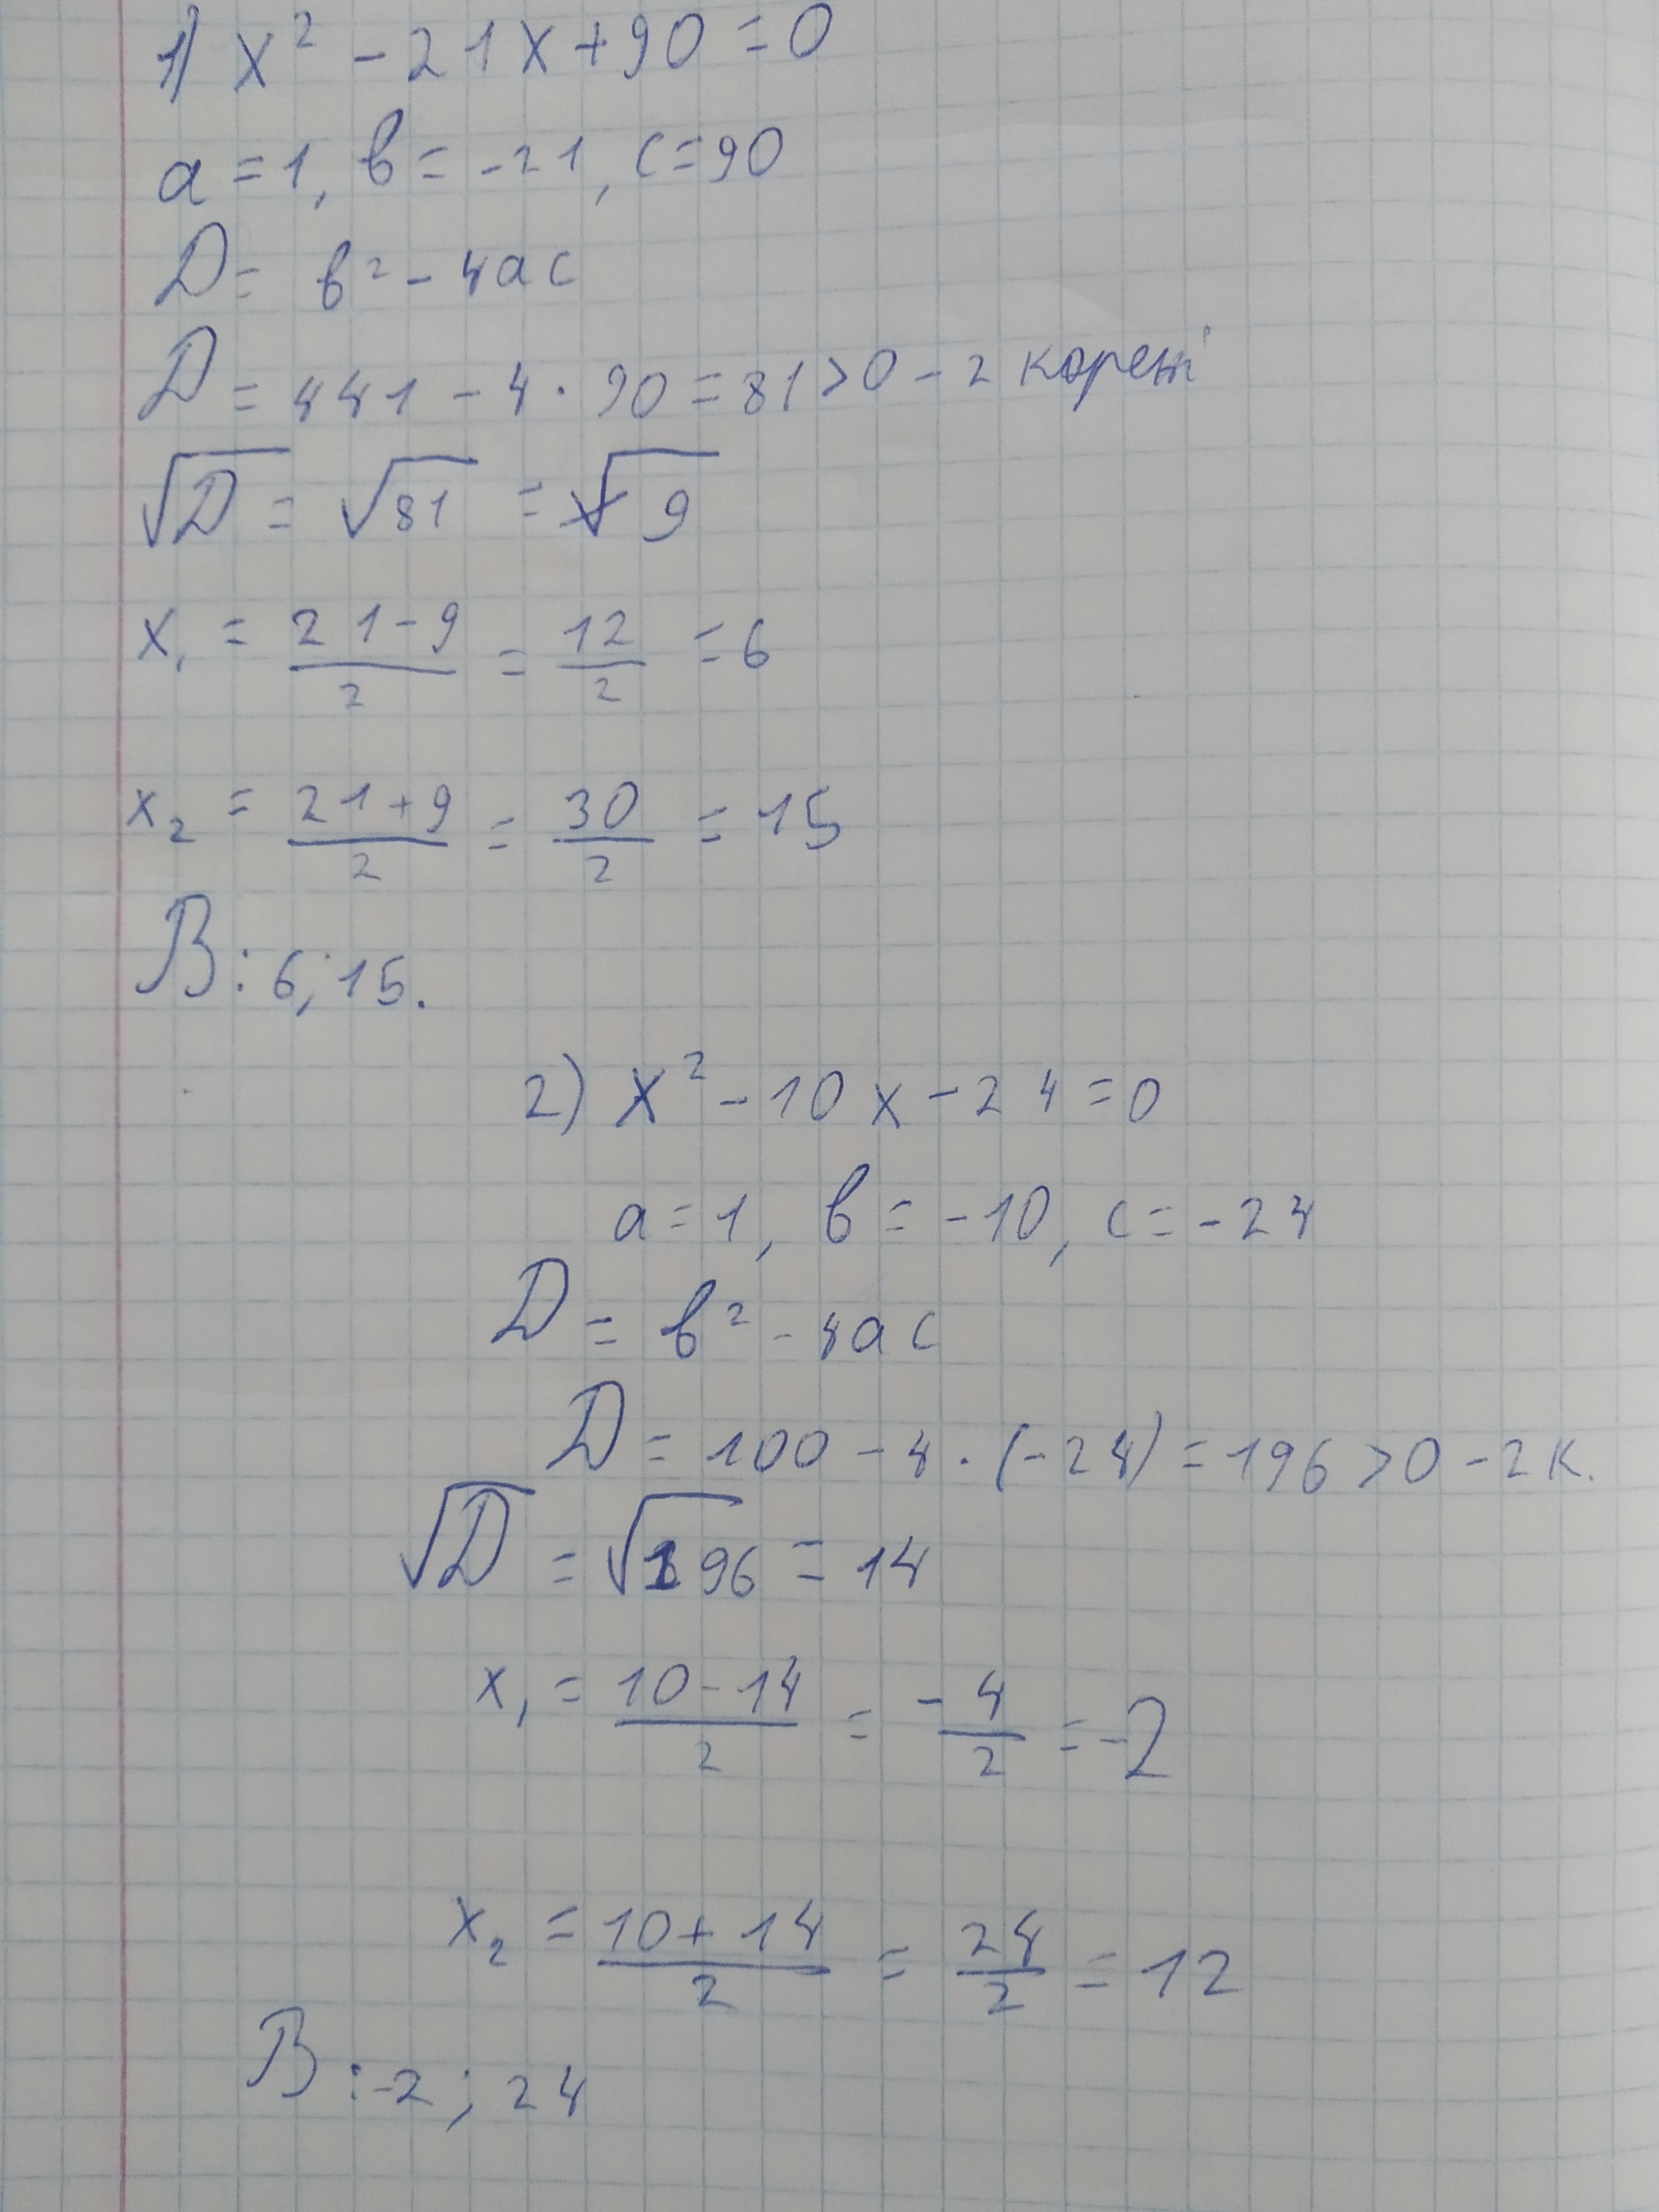 1) x² - 21x + 90 = 0
a = 1, b = -21, c = 90
D = b² - 4ac
D = 441 - 4 · 90 = 81 > 0 - 2 корені
√D = √81 = √9
x₁ = (21 - 9)/2 = 12/2 = 6
x₂ = (21 + 9)/2 = 30/2 = 15
В: 6; 15.
2) x² - 10x - 24 = 0
a = 1, b = -10, c = -24
D = b² - 4ac
D = 100 - 4 · (-24) = 196 > 0 - 2 к.
√D = √196 = 14
x₁ = (10 - 14)/2 = -4/2 = -2
x₂ = (10 + 14)/2 = 24/2 = 12
В: -2; 24